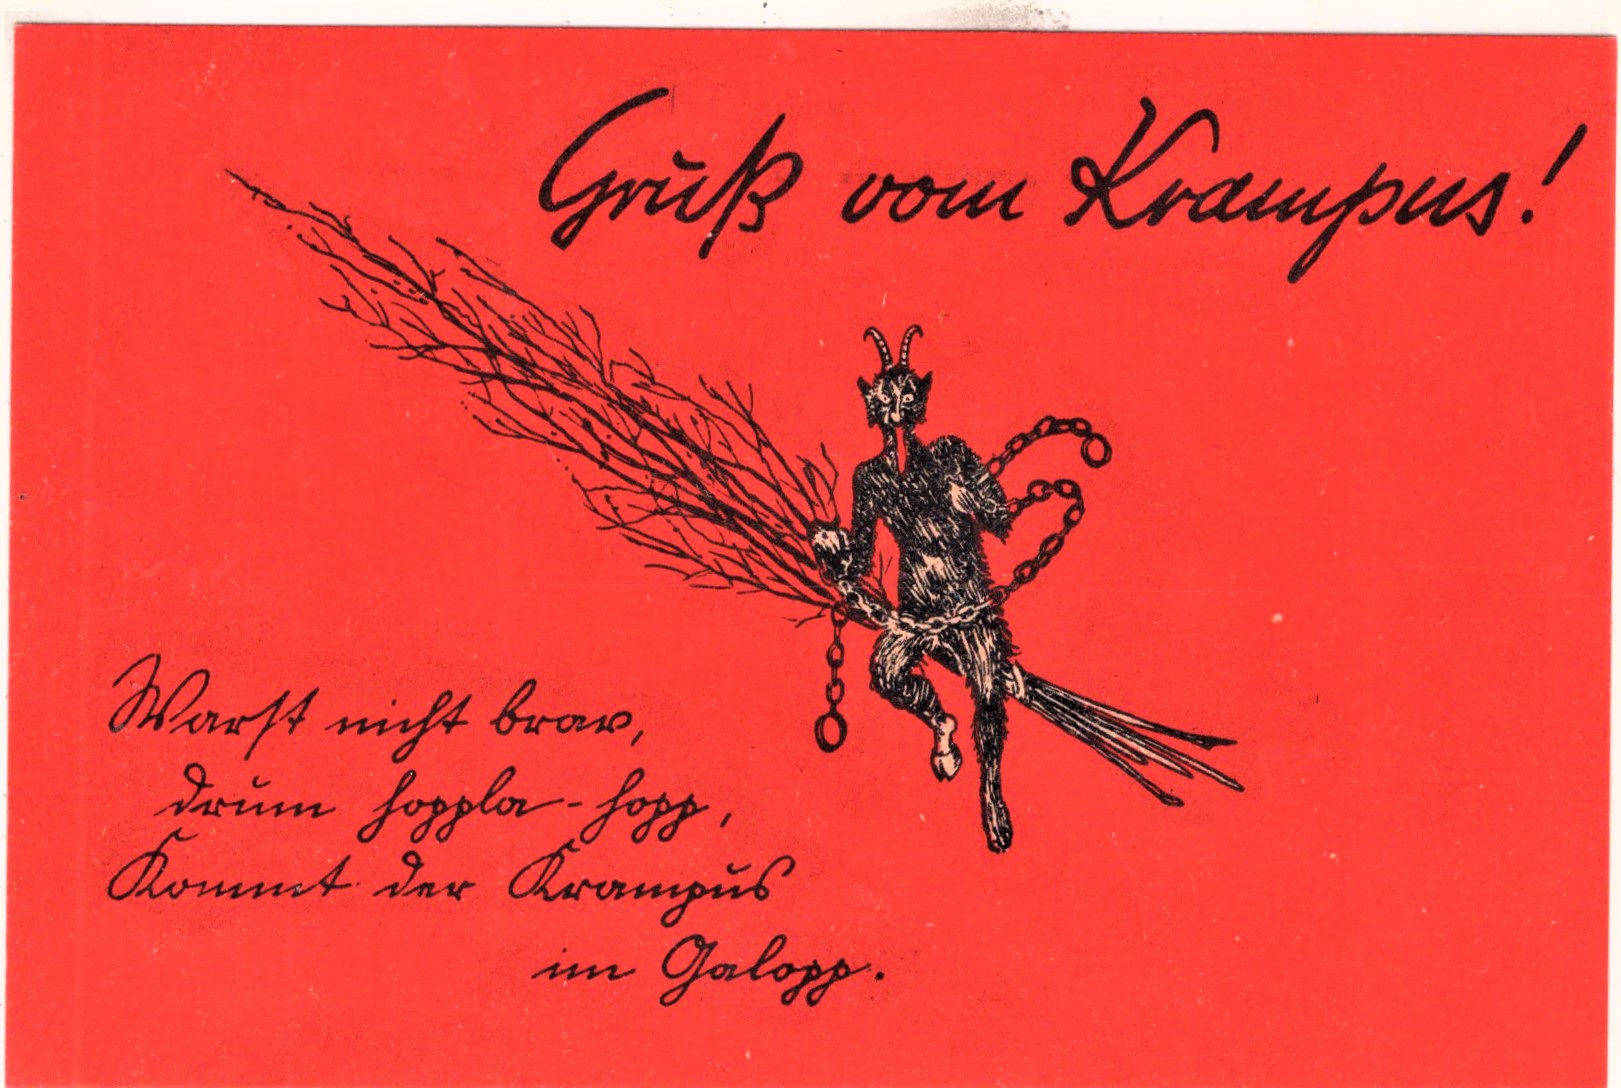 Gruß vom Krampus!
Warst nicht brav,
drum hoppla-hopp,
Kommt der Krampus
im Galopp.